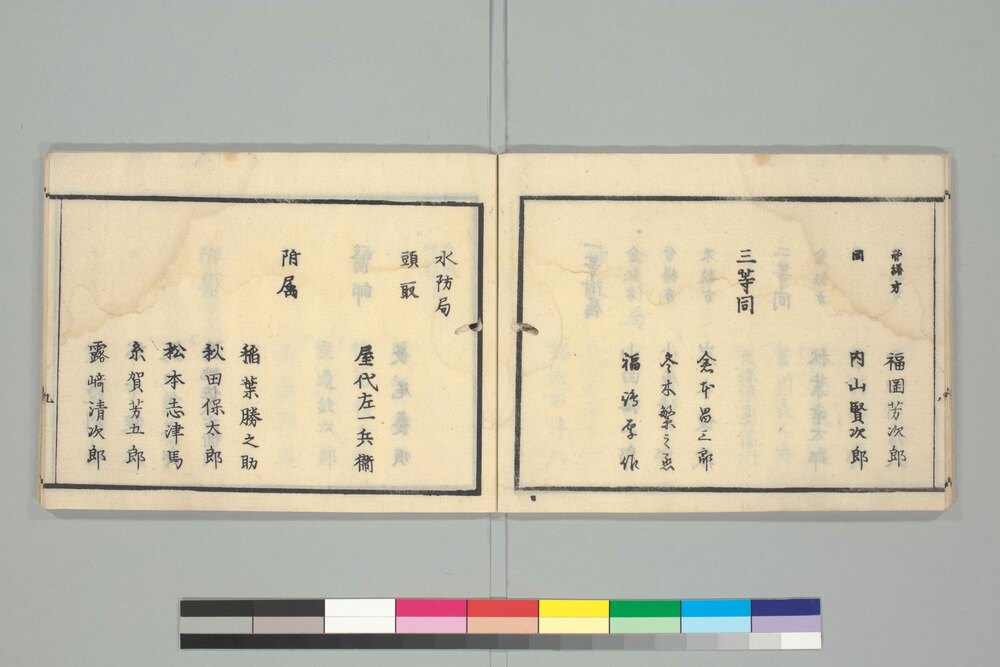 営繕方
福岡芳次郎
同
内山賢次郎
三等同
倉本昌三郎
冬木繁之丞
福嶋孝作
水防局
頭取
屋代左一兵衛
附属
稲葉勝之助
秋田保太郎
松本志津馬
糸賀芳五郎
露﨑清次郎